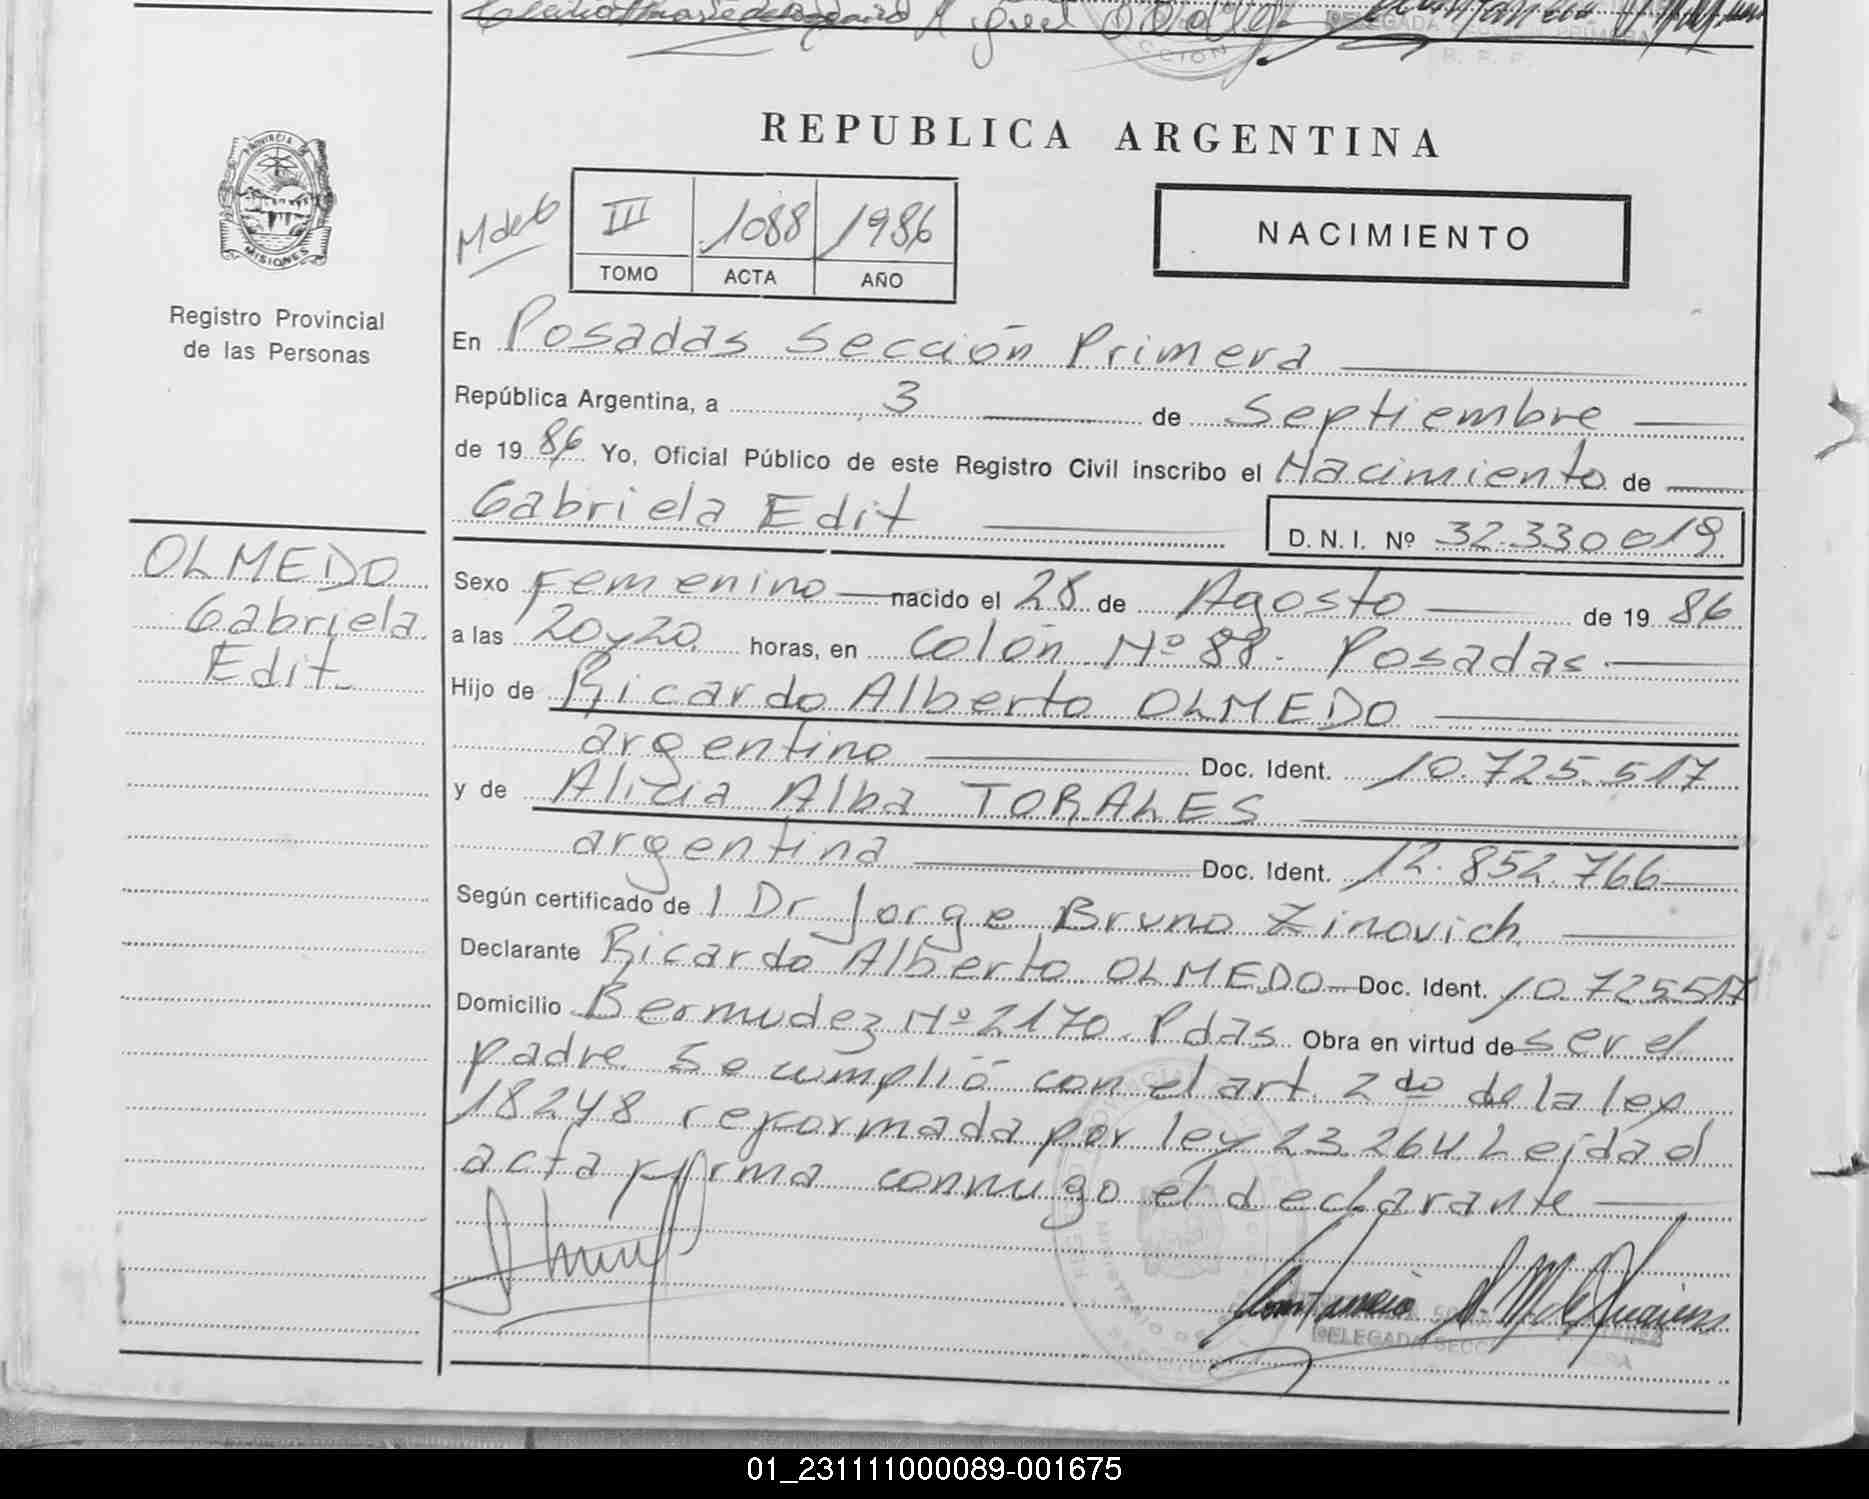 REPUBLICA ARGENTINA
PROVINCIA DE
MISIONES
Registro Provincial
de las Personas
M de G
III 1088 1986
TOMO ACTA AÑO
NACIMIENTO
En Posadas Sección Primera
República Argentina, a 3 de Septiembre
de 19 86 Yo, Oficial Público de este Registro Civil inscribo el Nacimiento de
Gabriela Edit
D.N.I. Nº 32.330019
OLMEDO
Gabriela
Edit
Sexo Femenino nacido el 28 de Agosto de 19 86
a las 20y20 horas, en Colón Nº 88. Posadas
Hijo de Ricardo Alberto OLMEDO
argentino Doc. Ident. 10.725.517
y de Alicia Alba TORALES
argentina Doc. Ident. 12.852.766
Según certificado de l Dr Jorge Bruno Zinovich
Declarante Ricardo Alberto OLMEDO Doc. Ident. 10.725517
Domicilio Bermudez Nº 2170. Pdas Obra en virtud de ser el
padre Se cumplió con el art. 2do de la ley
18248 reformada por ley 23.264. Leida el
acta firma conmigo el declarante
DELEGADA SECC
01_231111000089-001675